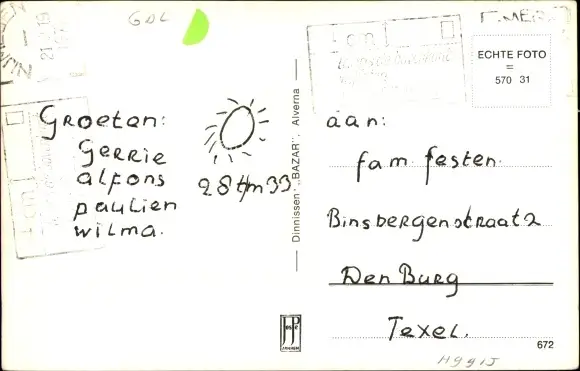 GDL
Groeten:
Gerrie
alfons
paulien
wilma.
28 t/m 33
Dinnissen "BAZAR", Alverna
ECHTE FOTO
=
570 31
aan:
fam festen.
Binsbergenstraat 2
Den Burg
Texel.
672